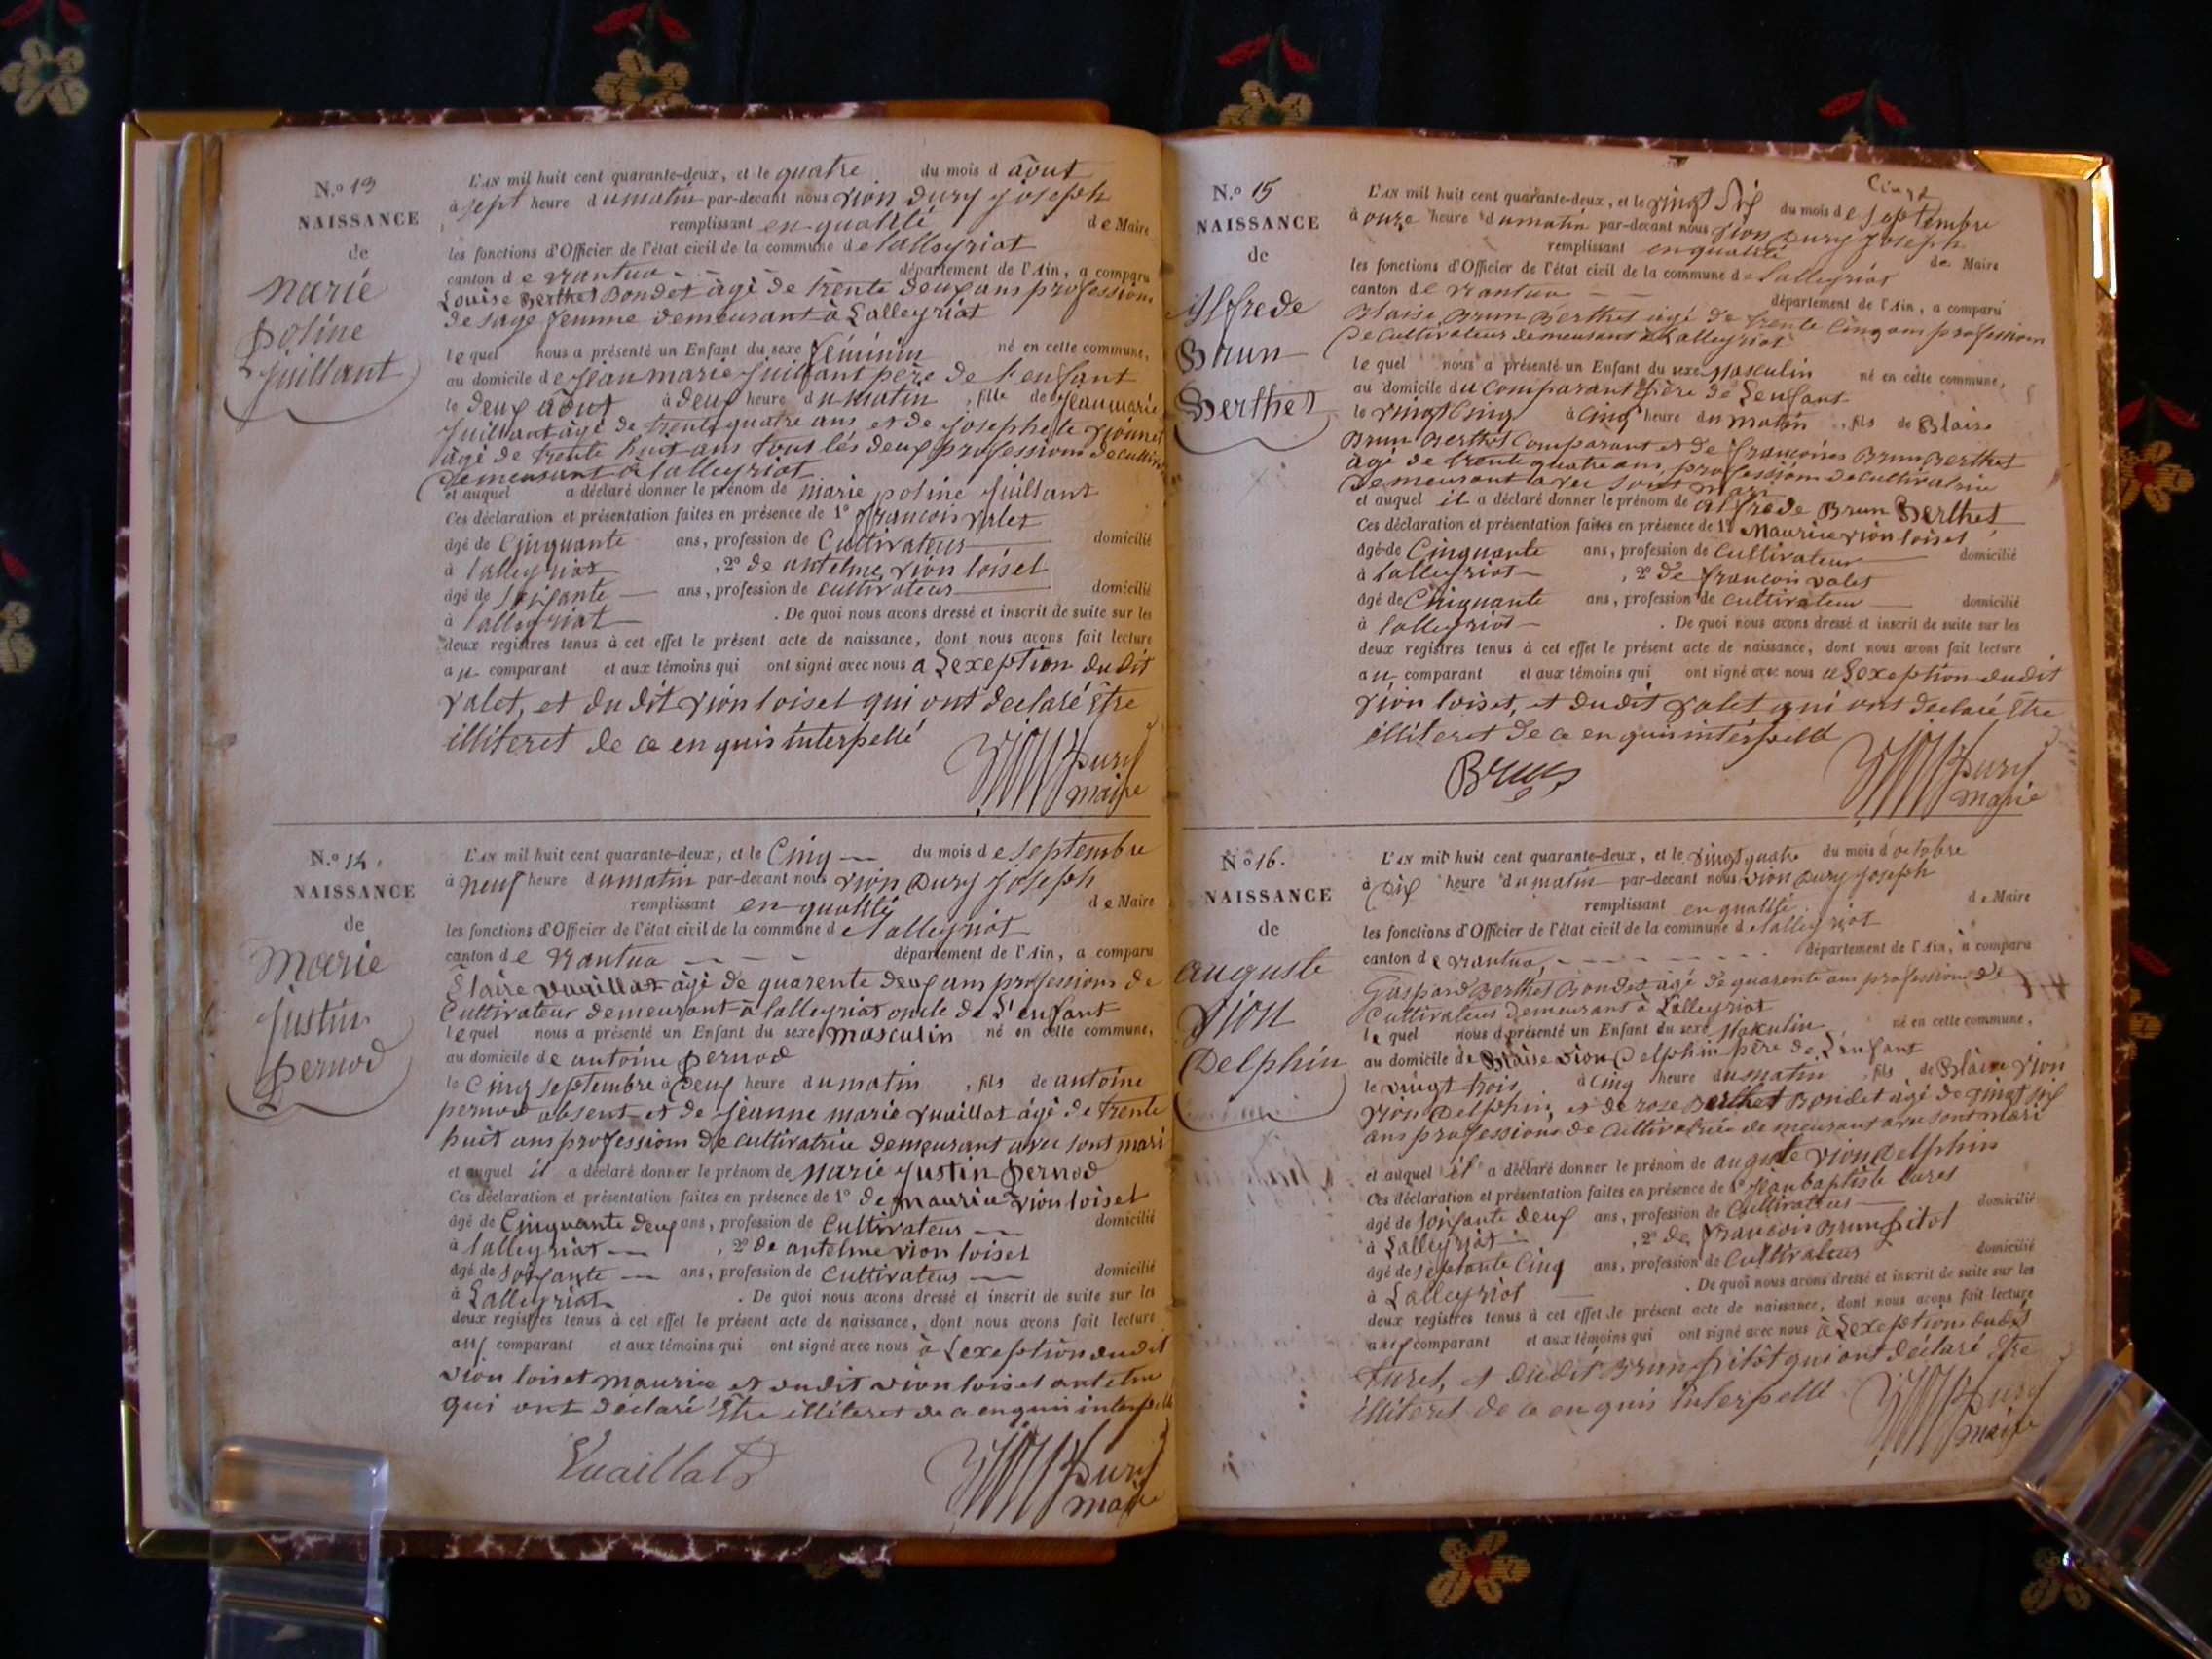 N.º 13
NAISSANCE
de
Marie
Poline
Juillant
L'AN mil huit cent quarante-deux, et le quatre du mois d août
à sept heure du matin par-devant nous Vion Dury Joseph
remplissant en qualité de Maire
les fonctions d'Officier de l'état civil de la commune de lalleyriat
canton de Nantua - - département de l'Ain, a comparu
Louise Berthet Bondet âgé de trente deux ans profession
de sage femme demeurant à Lalleyriat
lequel nous a présenté un Enfant du sexe féminin né en cette commune,
au domicile de Jean marie Juillant père de l'enfant
le deux août à deux heure du matin, fille de Jean marie
Juillant âgé de trente quatre ans et de Josephete Vionnet
âgé de trente huit ans tous les deux profession de
demeurant à lalleyriat
et auquel a déclaré donner le prénom de Marie poline Juillant
Ces déclaration et présentation faites en présence de 1º françois Valet
âgé de Cinquante ans, profession de Cultivateur domicilié
à lalleyriat , 2º de antelme Vion loiset
âgé de soixante ans, profession de cultivateur domicilié
à lalleyriat . De quoi nous avons dressé et inscrit de suite sur les
deux registres tenus à cet effet le présent acte de naissance, dont nous avons fait lecture
au comparant et aux témoins qui ont signé avec nous a Lexeption du dit
Valet, et du dit Vion loiset qui ont declaré être
illiteret de ce en quis interpellé
Vion Dury
maire
N.º 14.
NAISSANCE
de
Marie
Justin
Pernod
L'AN mil huit cent quarante-deux, et le Cinq du mois de Septembre
à neuf heure du matin par-devant nous Vion Dury Joseph
remplissant en qualité de Maire
les fonctions d'Officier de l'état civil de la commune de lalleyriat
canton de Nantua - - - département de l'Ain, a comparu
Vuaillat âgé de quarente deux ans profession de
Cultivateur demeurant à lalleyriat oncle de L'enfant
lequel nous a présenté un Enfant du sexe Masculin né en cette commune,
au domicile de antoine Pernod
le Cinq septembre à deux heure du matin, fils de antoine
pernod absent et de Jeanne marie Vuaillat âgé de trente
huit ans profession de cultivatrice demeurant avec sont mari
et auquel il a déclaré donner le prénom de Marie Justin Pernod
Ces déclaration et présentation faites en présence de 1º de maurice Vion loiset
âgé de Cinquante deux ans, profession de Cultivateur domicilié
à lalleyriat , 2º de antelme Vion loiset
âgé de soixante ans, profession de Cultivateur domicilié
à Lalleyriat . De quoi nous avons dressé et inscrit de suite sur les
deux registres tenus à cet effet le présent acte de naissance, dont nous avons fait lecture
aux comparant et aux témoins qui ont signé avec nous à Lexeption du dit
Vion loiset maurice et du dit Vion loiset antelme
qui ont déclaré être illiteret de ce en quis interpellé
Vuaillat
Vion Dury
maire
N.º 15
NAISSANCE
de
Alfrede
Brun
Berthet
Cinq
L'AN mil huit cent quarante-deux, et le vingt six du mois de septembre
à onze heure du matin par-devant nous Vion Dury Joseph
remplissant en qualité de Maire
les fonctions d'Officier de l'état civil de la commune de Lalleyriat
canton de Nantua département de l'Ain, a comparu
Blaise Brun Berthet âgé de trente Cinq ans profession
de Cultivateur demeurant à Lalleyriat
lequel nous a présenté un Enfant du sexe Masculin né en cette commune,
au domicile du Comparant père de Lenfant
le vingt Cinq à cinq heure du matin, fils de Blaise
Brun Berthet Comparant et de françoise Brun Berthet
âgé de trente quatre ans, profession de cultivatrice
demeurant avec sont mari
et auquel il a déclaré donner le prénom de alfrede Brun Berthet
Ces déclaration et présentation faites en présence de 1º Maurice Vion loiset
âgé de Cinquante ans, profession de Cultivateur domicilié
à lalleyriat , 2º de françois valet
âgé de Cinquante ans, profession de Cultivateur domicilié
à lalleyriat . De quoi nous avons dressé et inscrit de suite sur les
deux registres tenus à cet effet le présent acte de naissance, dont nous avons fait lecture
au comparant et aux témoins qui ont signé avec nous a Lexeption du dit
Vion loiset, et du dit Valet qui ont declaré être
illiteret de ce en quis interpellé
Brun
Vion Dury
maire
Nº 16.
NAISSANCE
de
auguste
Vion
Delphin
L'AN mil huit cent quarante-deux, et le vingt quatre du mois d'octobre
à dix heure du matin par-devant nous Vion Dury Joseph
remplissant en qualité de Maire
les fonctions d'Officier de l'état civil de la commune de lalleyriat
canton de Nantua, - - - - département de l'Ain, a comparu
Gaspard Berthet Bondet âgé de quarente ans profession de
Cultivateur demeurant à Lalleyriat
lequel nous a présenté un Enfant du sexe Masculin né en cette commune,
au domicile de Blaise Vion Delphin père de Lenfant
le vingt trois à cinq heure du matin, fils de Blaise Vion
Vion Delphin, et de rose Berthet Bondet âgé de vingt six
ans profession de Cultivatrice demeurant avec sont mari
et auquel il a déclaré donner le prénom de auguste Vion Delphin
Ces déclaration et présentation faites en présence de 1º Jean baptiste
âgé de soixante deux ans, profession de Cultivateur domicilié
à Lalleyriat , 2º de françois Brun pitot
âgé de septante Cinq ans, profession de Cultivateur domicilié
à Lalleyriat . De quoi nous avons dressé et inscrit de suite sur les
deux registres tenus à cet effet le présent acte de naissance, dont nous avons fait lecture
aux comparant et aux témoins qui ont signé avec nous à Lexeption du dit
et du dit Brun pitôt qui ont déclaré être
illiteret de ce en quis interpellé
Vion Dury
maire